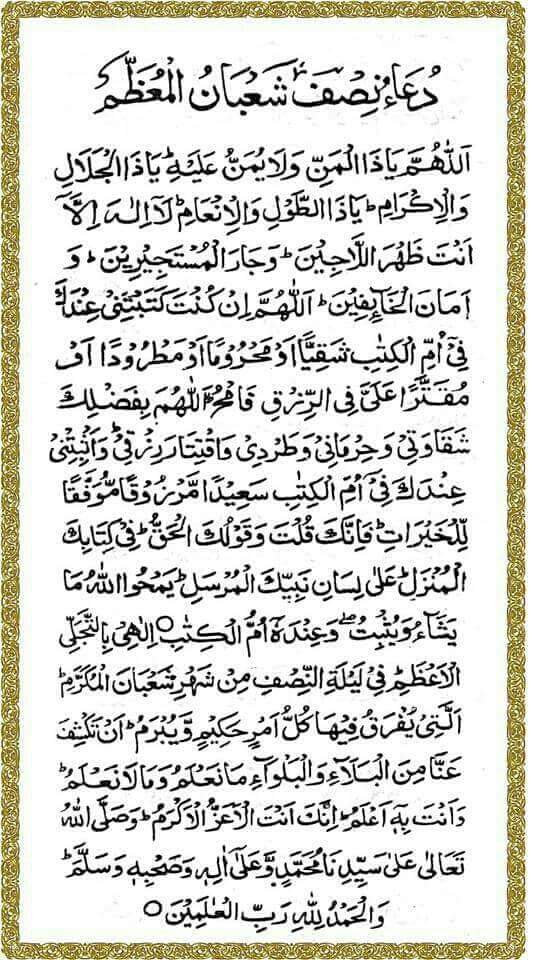 دُعَاءِ نِصْفِ شَعْبَانُ الْمُعَظَّمْ
اَللّٰهُمَّ يَاذَا الْمَنِّ وَلَا يُمَنُّ عَلَيْهِ ؕ يَاذَا الْجَلَالِ
وَالْاِكْرَامِ ؕ يَاذَا الطَّوْلِ وَالْاِنْعَامِ ؕ لَآ اِلٰهَ اِلَّآ
اَنْتَ ظَهْرَ اللَّاجِيْنَ ؕ وَجَارَ الْمُسْتَجِيْرِيْنَ ؕ وَ
اَمَانَ الْخَآئِفِيْنَ ؕ اَللّٰهُمَّ اِنْ كُنْتَ كَتَبْتَنِيْ عِنْدَكَ
فِيْٓ اُمِّ الْكِتٰبِ شَقِيًّا اَوْ مَحْرُوْمًا اَوْ مَطْرُوْدًا اَوْ
مُقَتَّرًا عَلَيَّ فِي الرِّزْقِ فَامْحُ اَللّٰهُمَّ بِفَضْلِكَ
شَقَاوَتِيْ وَحِرْمَانِيْ وَطَرْدِيْ وَاقْتِتَارَ رِزْقِيْ ؕ وَاَثْبِتْنِيْ
عِنْدَكَ فِيْٓ اُمِّ الْكِتٰبِ سَعِيْدًا مَّرْزُوْقًا مُّوَفَّقًا
لِّلْخَيْرَاتِ ؕ فَاِنَّكَ قُلْتَ وَقَوْلُكَ الْحَقُّ ؕ فِيْ كِتَابِكَ
الْمُنَزَّلِ ؕ عَلٰى لِسَانِ نَبِيِّكَ الْمُرْسَلِ ؕ يَمْحُوا اللّٰهُ مَا
يَشَآءُ وَيُثْبِتُ ۖ وَعِنْدَهٗٓ اُمُّ الْكِتٰبِ ○ اِلٰهِيْ بِالتَّجَلِّي
الْاَعْظَمِ ؕ فِيْ لَيْلَةِ النِّصْفِ مِنْ شَهْرِ شَعْبَانَ الْمُكَرَّمِ ؕ
الَّتِيْ يُفْرَقُ فِيْهَا كُلُّ اَمْرٍ حَكِيْمٍ وَّيُبْرَمُ ؕ اَنْ تَكْشِفَ
عَنَّا مِنَ الْبَلَآءِ وَالْبَلْوَآءِ مَا نَعْلَمُ وَمَا لَا نَعْلَمُ ؕ
وَاَنْتَ بِهٖٓ اَعْلَمُ ؕ اِنَّكَ اَنْتَ الْاَعَزُّ الْاَكْرَمُ ؕ وَصَلَّى اللّٰهُ
تَعَالٰى عَلٰى سَيِّدِنَا مُحَمَّدٍ وَّعَلٰٓى اٰلِهٖ وَصَحْبِهٖ وَسَلَّمَ ؕ
وَالْحَمْدُ لِلّٰهِ رَبِّ الْعٰلَمِيْنَ ○